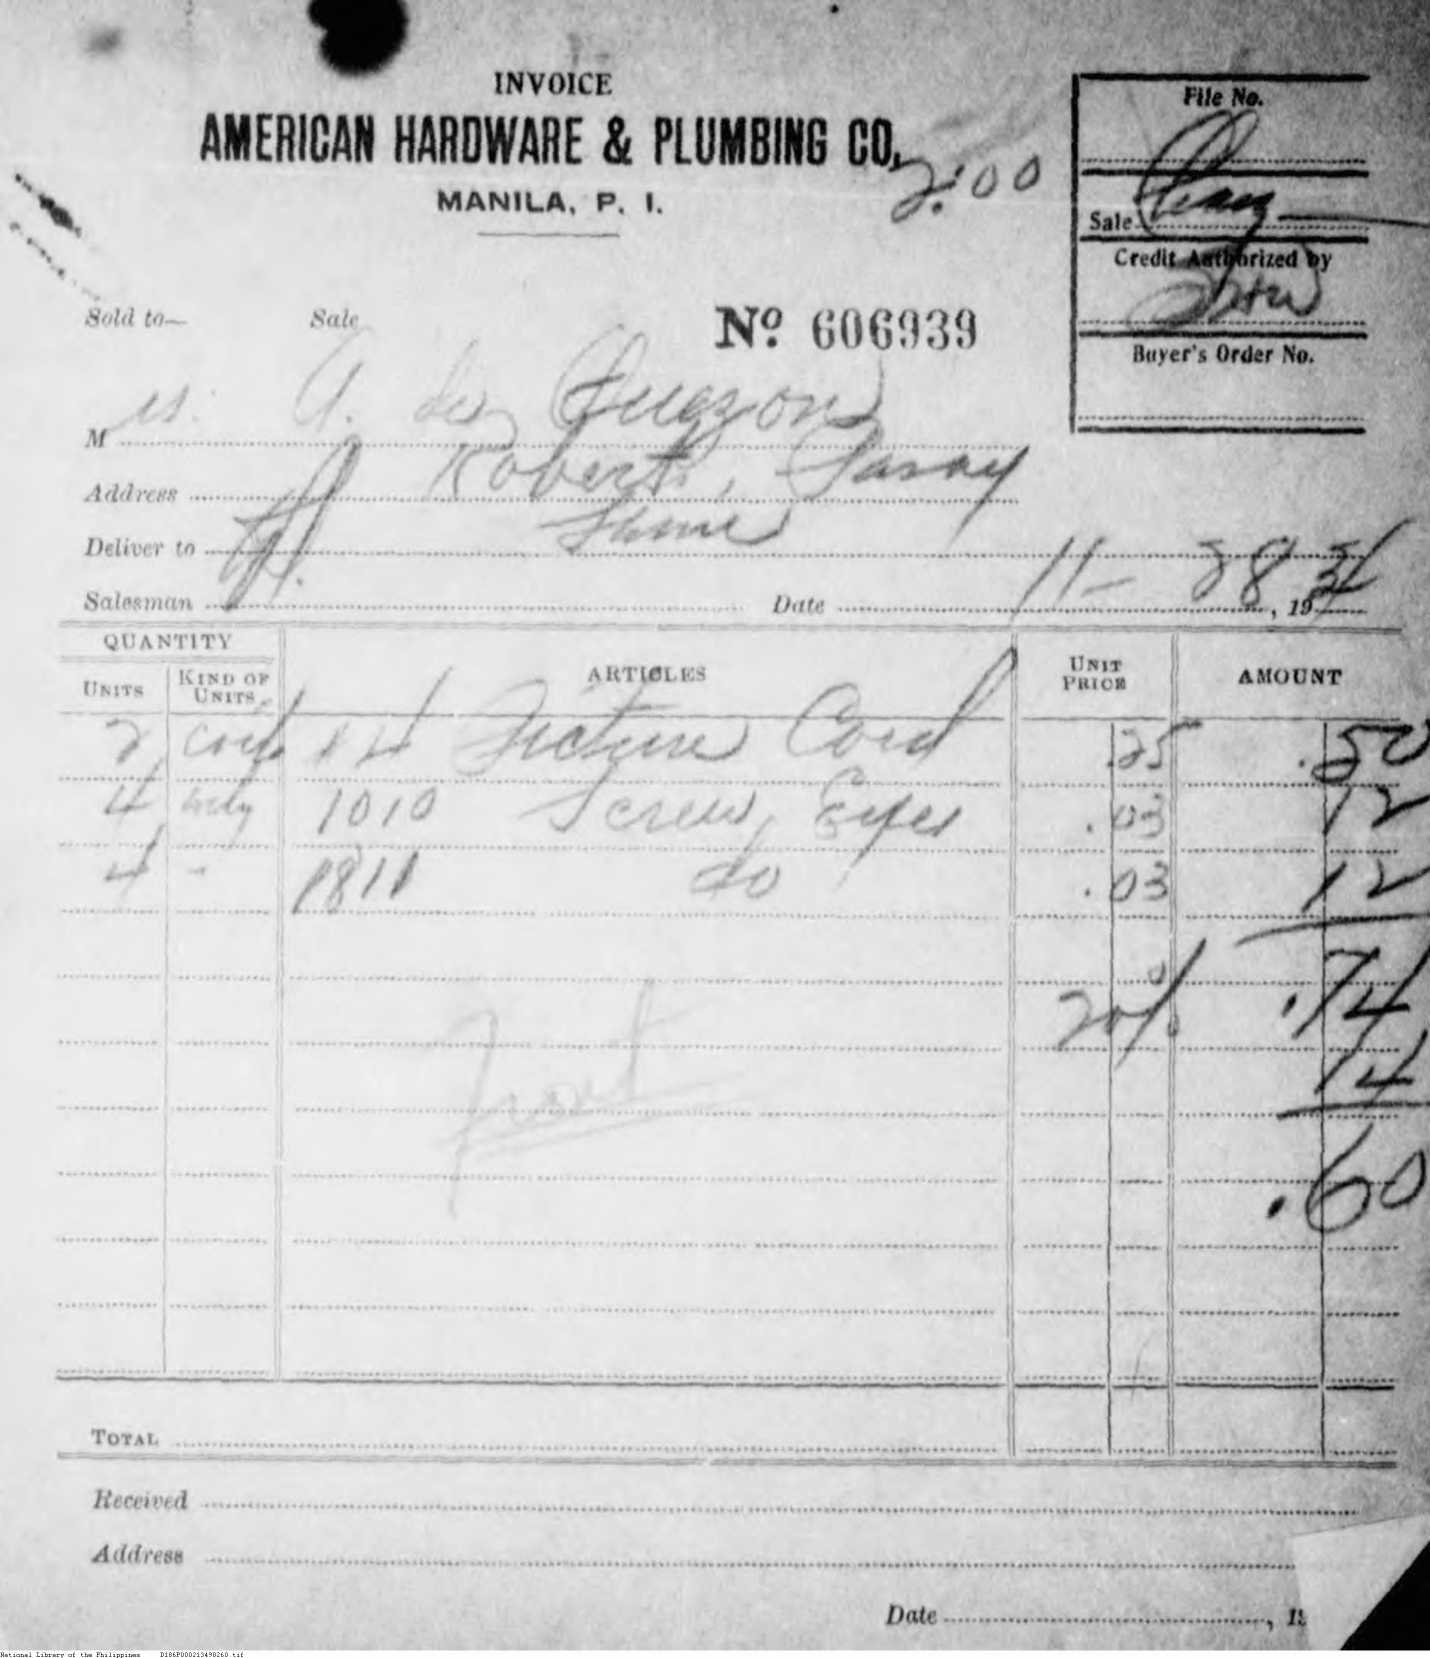 INVOICE
AMERICAN HARDWARE & PLUMBING CO.
MANILA, P. I.
2:00
File No.
Sale Chary
Credit Authorized by
Buyer's Order No.
Sold to— Sale
No. 606939
M s. A. de Quezon
Address Roberts, Pasay
Deliver to Same
Salesman Date 11- 28, 1934
QUANTITY
UNITS KIND OF UNITS ARTICLES UNIT PRICE AMOUNT
2 14 Picture Cord .25 .50
4 only 1010 Screw Eyes .03 12
4 - 1811 do .03 12
20% .74
14
.60
TOTAL
Received
Address
Date , 19
National Library of the Philippines D186P000213498260.tif